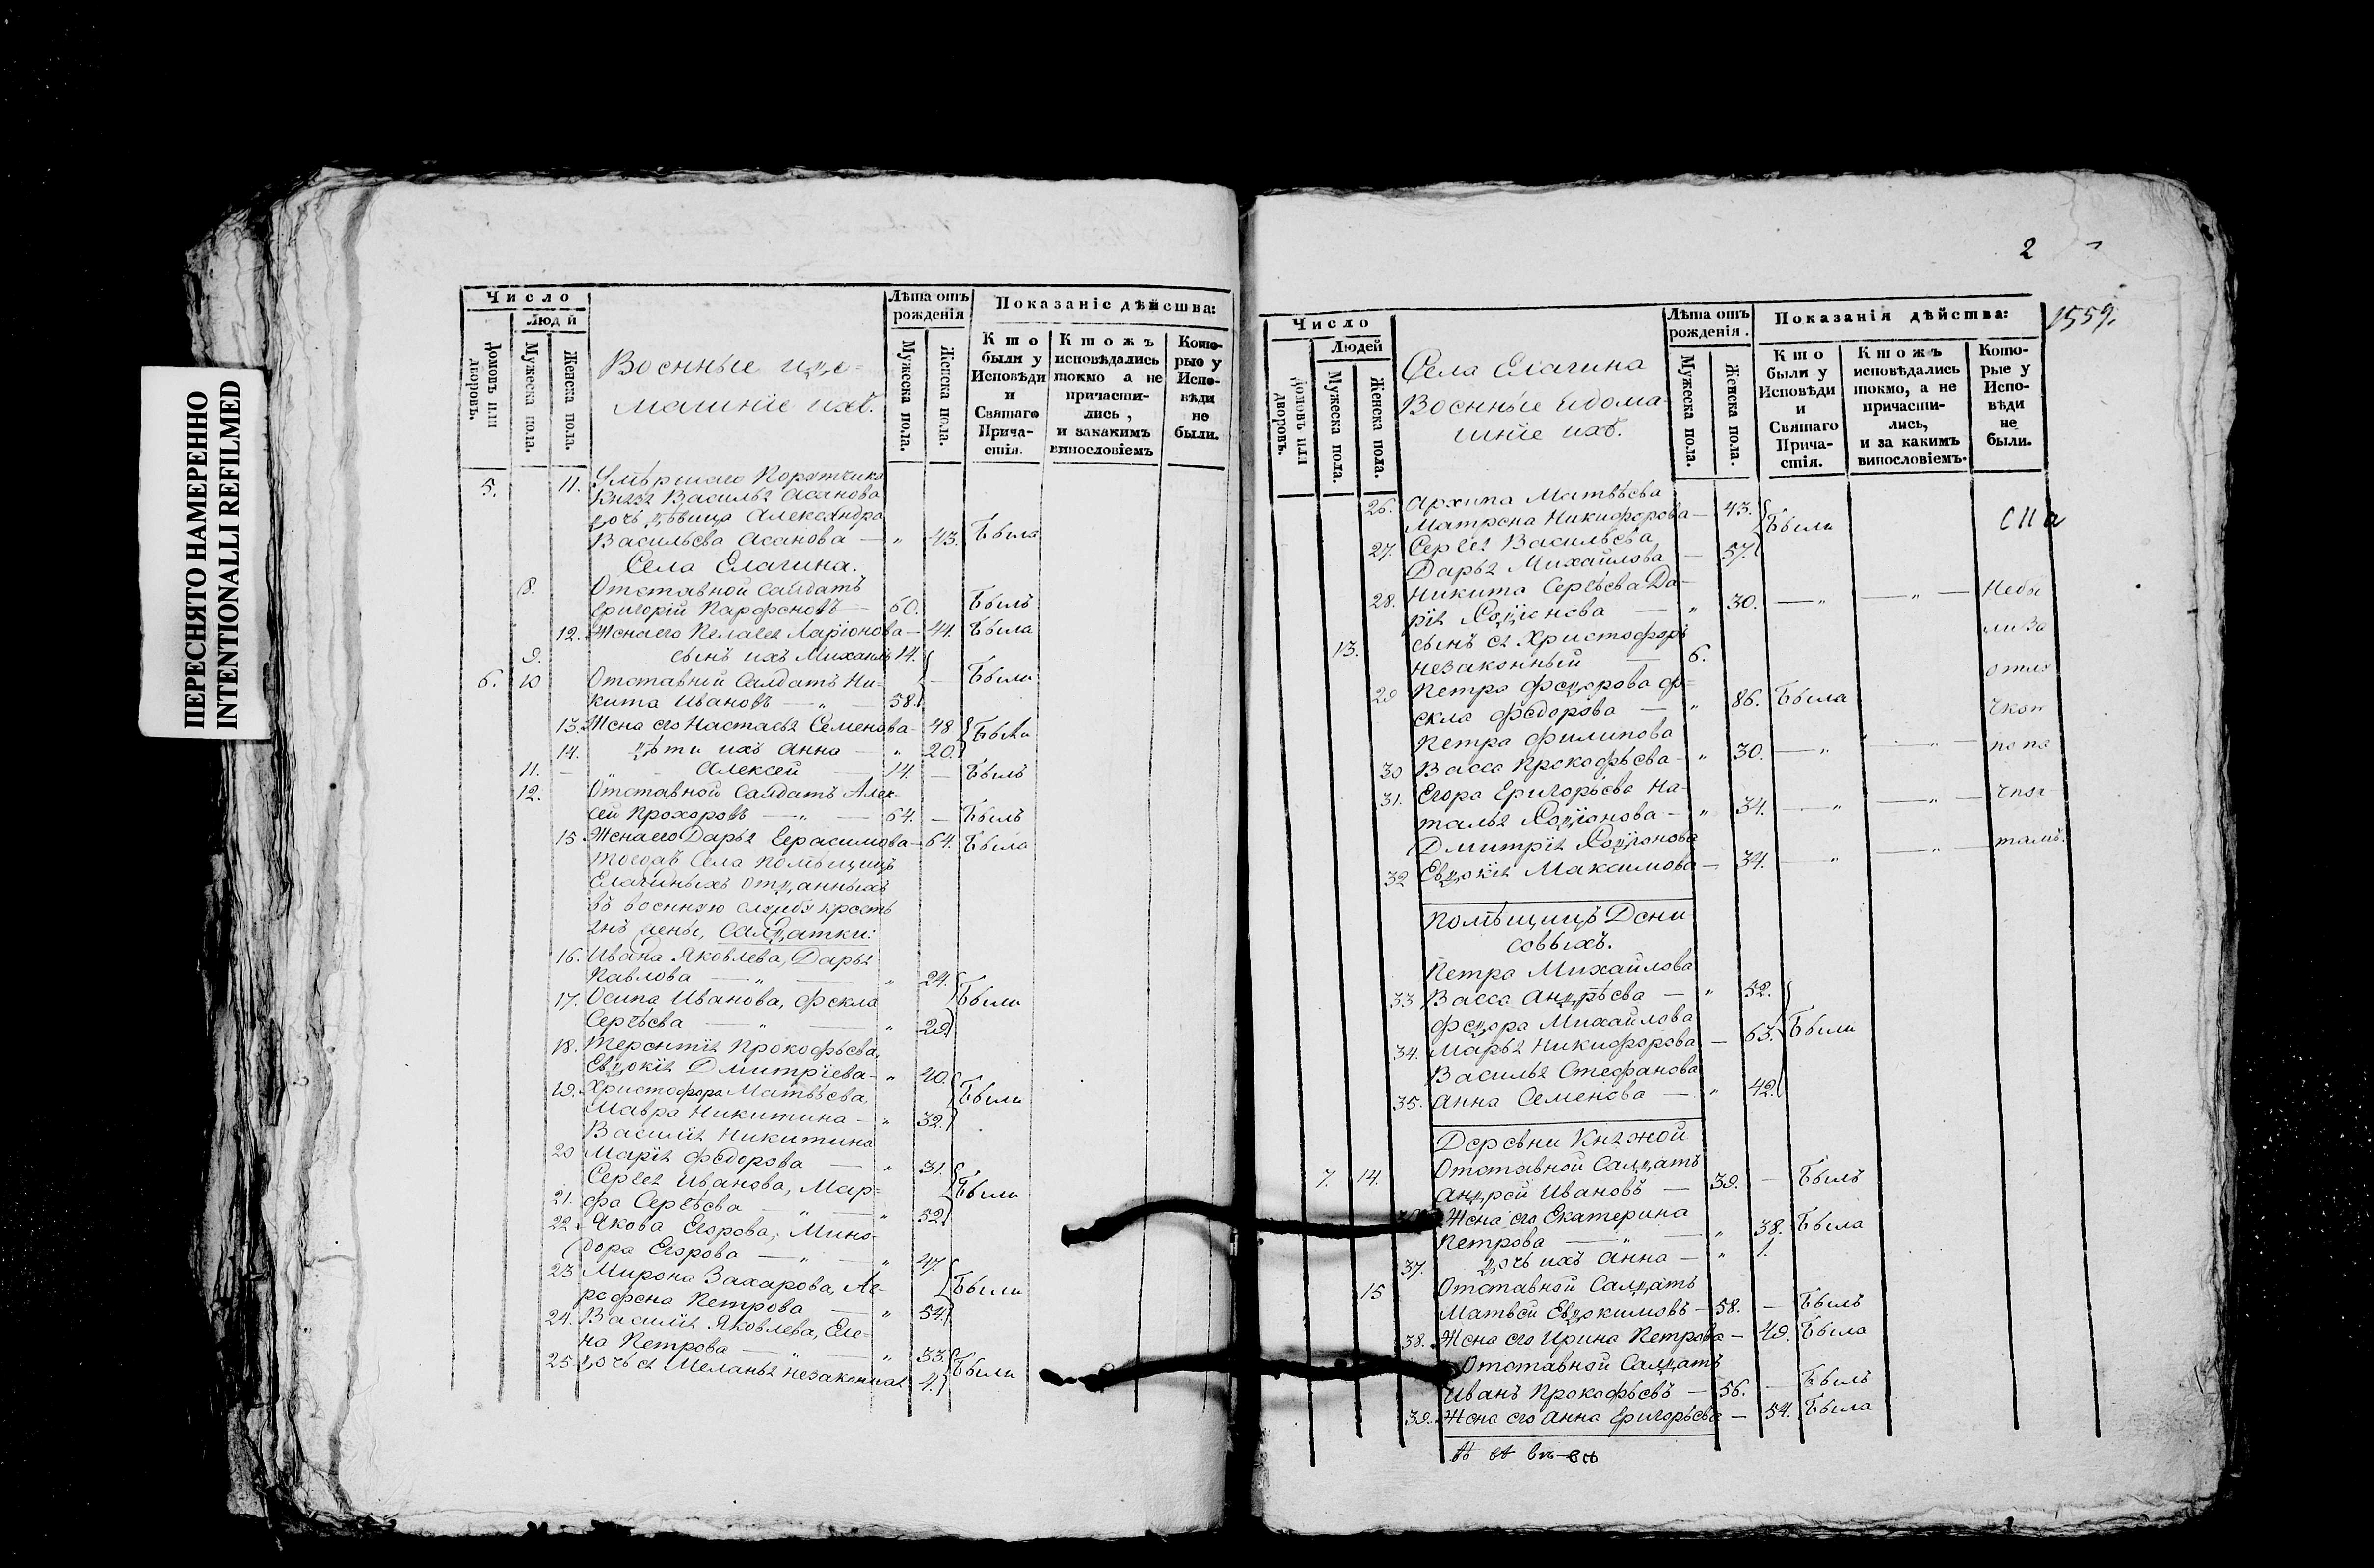 ПЕРЕСНЯТО НАМЕРЕННО
INTENTIONALLI REFILMED
Число
Люд й
Домовъ или дворовъ.
Мужеска пола.
Женска пола.
Военные и до-
машніе ихъ.
Лѣта отъ рожденія
Мужеска пола.
Женска пола.
Показаніе дѣйства:
Кто были у Исповѣди и Святаго Прича-стія.
Ктожъ исповѣдались токмо а не причасти-лись, и закакимъ винословіемъ
Кото-рые у Испо-вѣди не были.
5. 11. Умѣршаго Порутчика
Князя Василья Асанова
дочь дѣвица Александра
Васильева Асанова — „ 43. Была
Села Елагина.
8. Отставной Салдатъ
Григорій Парфеновъ — 60. Былъ
12. Жена его Пелагея Ларіонова — 44. Была
9. сынъ ихъ Михаилъ 14.
6. 10 Отставный Салдатъ Ни-
кита Ивановъ — „ — 58. — Были
13. Жена его Настасья Семенова — 48
14. дѣти ихъ Анна — „ 20. Были
11. — Алексей 14. — Былъ
12. Отставной Салдатъ Алек-
сей Прохоровъ — „ — 64. — Былъ
15 Жена его Дарья Герасимова — 64. Была
Тогожъ Села помѣщицъ
Елагиныхъ отданныхъ
въ военную службу кресть
янъ жены, Салдатки:
16. Ивана Яковлева, Дарья
Павлова — „ — „ 24.
17. Осипа Иванова, Фекла Были
Сергѣева — „ — „ 29
18. Терентія Прокофьева,
Евдокія Дмитріева — „ 40.
19. Христофора Матвѣева, Были
Мавра Никитина — „ 32.
Василія Никитина
20 Марія Федорова — „ 31.
Сергея Иванова, Мар- Были
21. фа Сергѣева — „ — „ 52.
22. Якова Егорова, Мино-
дора Егорова — „ — „ 47.
23 Мирона Захарова, Аг- Были
рофена Петрова — „ 54.
24. Василія Яковлева, Еле-
на Петрова — „ — „ 33. Были
25. дочь ея Меланья незаконная 4.
2
1559.
Число
Людей
Домовъ или дворовъ.
Мужеска пола.
Женска пола.
Села Елагина
Военные и дома-
шніе ихъ.
Лѣта отъ рожденія.
Мужеска пола.
Женска пола.
Показанія дѣйства:
Кто были у Исповѣди и Святаго Прича-стія.
Ктожъ исповѣдались токмо, а не причасти-лись, и за какимъ винословіемъ.
Кото-рые у Испо-вѣди не были.
26. Архипа Матвѣева
Матрена Никифорова — 43. Были
27. Сергея Васильева
Дарья Михайлова — 57.
28. Никита Сергѣева Да-
рія Родіонова — „ 30. — „ — „ — Небы
13. сынъ ея Христофоръ ли за
незаконный — 6.
29 Петра Федорова Фе- отлу
екла Федорова — „ 86. Была
Петра Филипова чкою
30 Васса Прокофьева — „ 30. — „ — „ — попа
31. Егора Григорьева На-
талья Родіонова — „ 34. — „ — „ —
Дмитрія Родіонова
32 Евдокія Максимова — 34. — „ — „ —
Помѣщицъ Дени
совыхъ.
Петра Михайлова
33 Васса Андрѣева — „ 52.
Федора Михайлова
34. Марья Никифорова — 63. Были
Василья Стефанова
35. Анна Семенова — „ 42.
Деревни Княжной
7. 14. Отставной Салдатъ
Андрей Ивановъ — 39. — Былъ
Жена его Екатерина
Петрова — „ — „ 38. Была
37. дочь ихъ Анна — „ 1.
15 Отставной Салдатъ
Матвѣй Евдокимовъ — 58. — Былъ
38. Жена его Ирина Петрова — 49. Была
Отставной Салдатъ
Иванъ Прокофьевъ — 56. — Былъ
39. Жена его Анна Григорьева — 54. Была